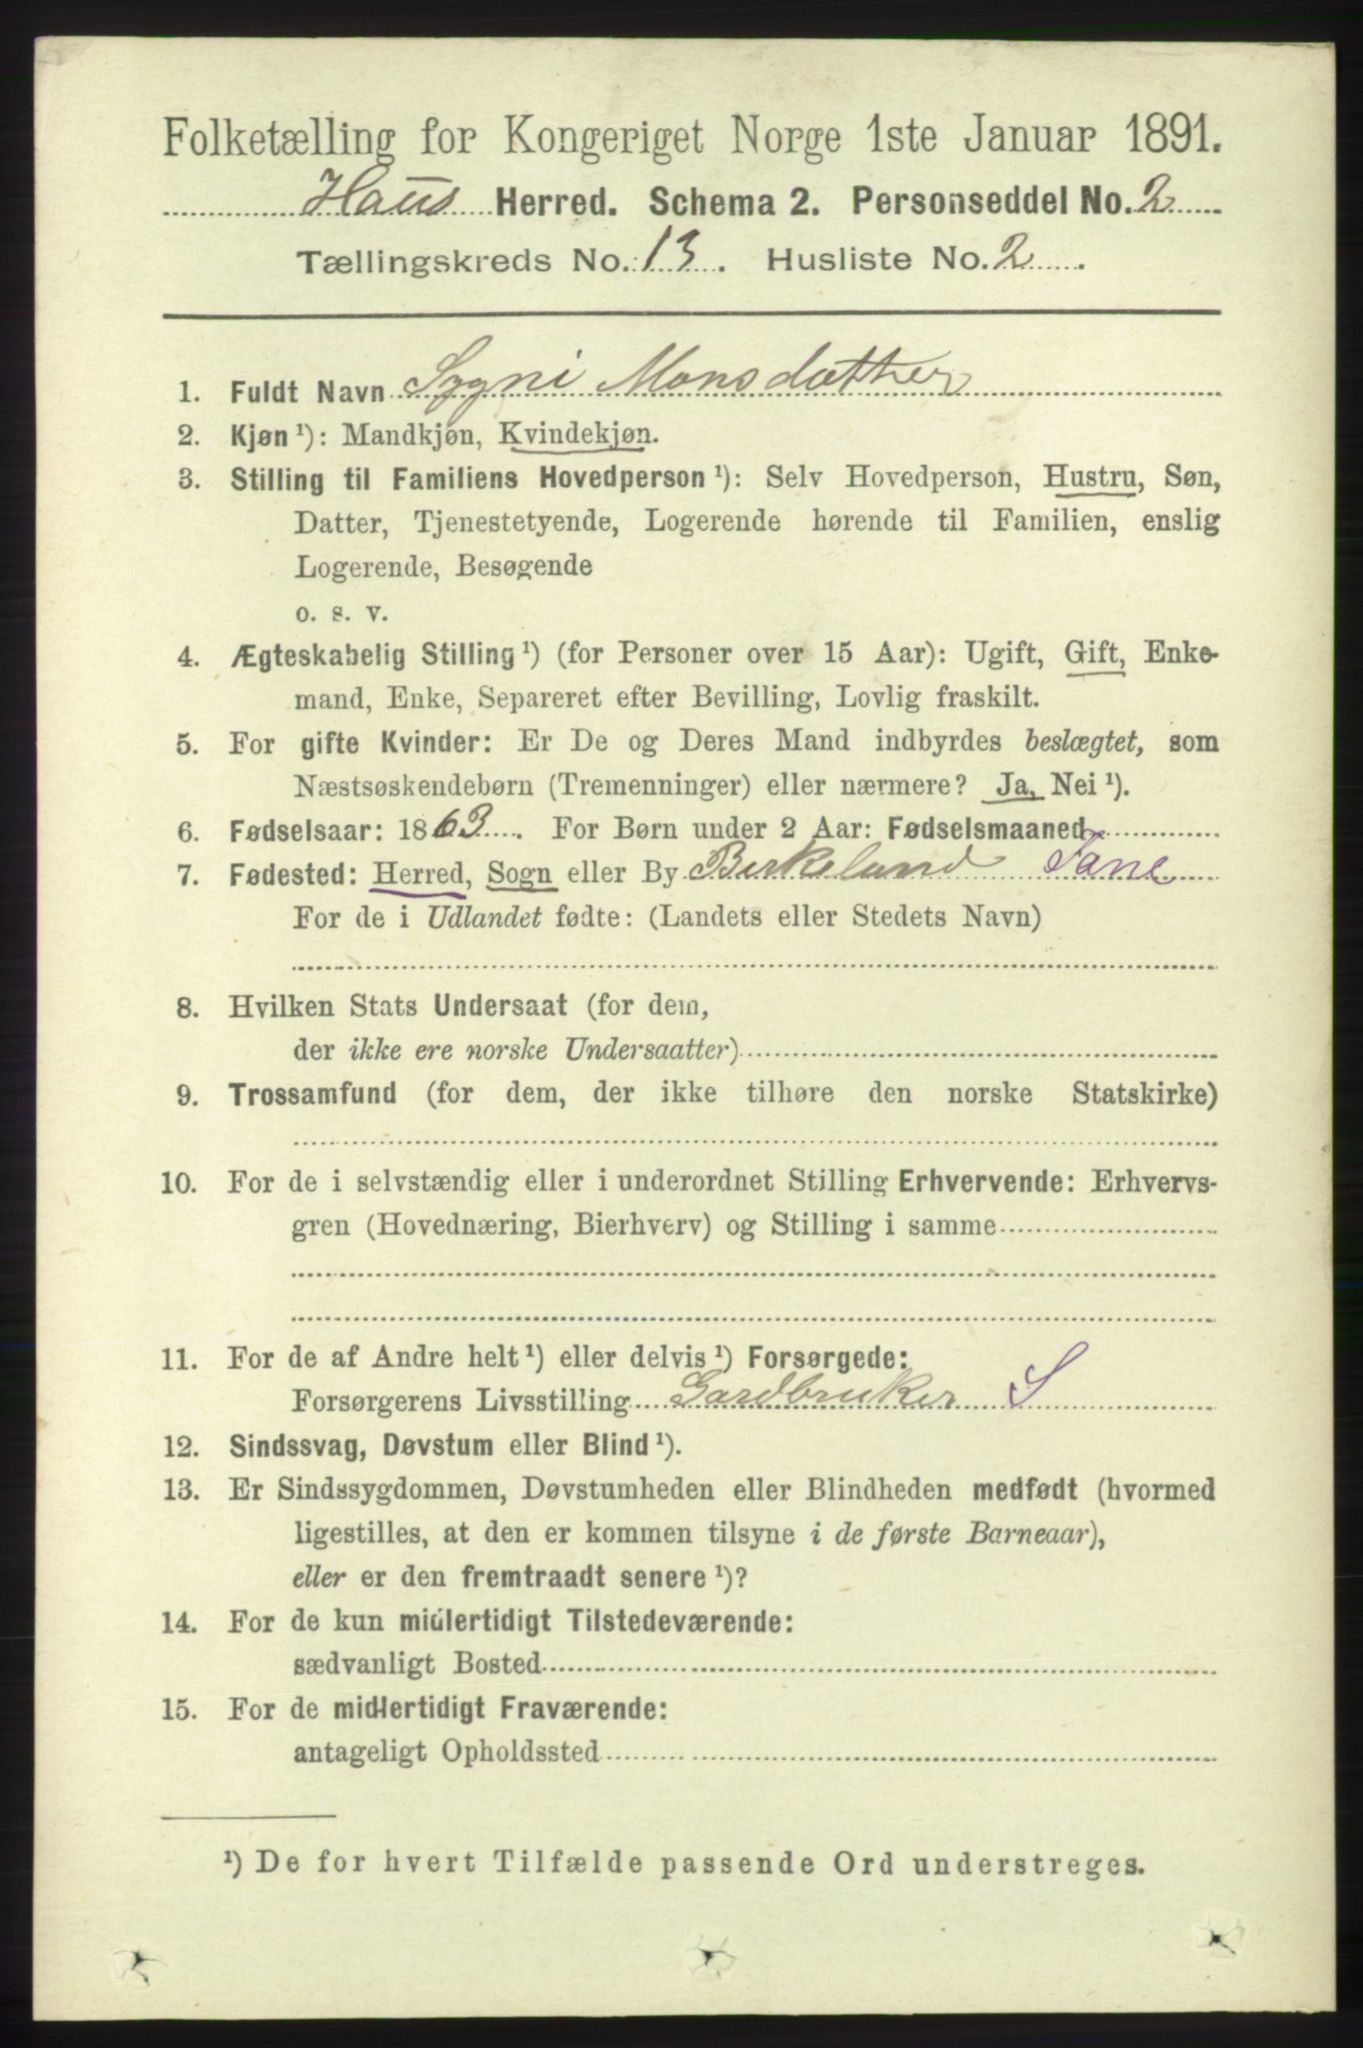 Folketælling for Kongeriget Norge 1ste Januar 1891.
Haus Herred. Schema 2. Personseddel No. 2
Tællingskreds No. 13. Husliste No. 2.
1. Fuldt Navn Sygni Monsdatter
2. Kjøn ¹): Mandkjøn, Kvindekjøn.
3. Stilling til Familiens Hovedperson ¹): Selv Hovedperson, Hustru, Søn,
Datter, Tjenestetyende, Logerende hørende til Familien, enslig
Logerende, Besøgende
o. s. v.
4. Ægteskabelig Stilling ¹) (for Personer over 15 Aar): Ugift, Gift, Enke-
mand, Enke, Separeret efter Bevilling, Lovlig fraskilt.
5. For gifte Kvinder: Er De og Deres Mand indbyrdes beslægtet, som
Næstsøskendebørn (Tremenninger) eller nærmere? Ja, Nei ¹).
6. Fødselsaar: 1863. For Børn under 2 Aar: Fødselsmaaned
7. Fødested: Herred, Sogn eller By Birkeland Fane
For de i Udlandet fødte: (Landets eller Stedets Navn)
8. Hvilken Stats Undersaat (for dem,
der ikke ere norske Undersaatter)
9. Trossamfund (for dem, der ikke tilhøre den norske Statskirke)
10. For de i selvstændig eller i underordnet Stilling Erhvervende: Erhvervs-
gren (Hovednæring, Bierhverv) og Stilling i samme
11. For de af Andre helt ¹) eller delvis ¹) Forsørgede:
Forsørgerens Livsstilling Gardbruker S
12. Sindssvag, Døvstum eller Blind ¹).
13. Er Sindssygdommen, Døvstumheden eller Blindheden medfødt (hvormed
ligestilles, at den er kommen tilsyne i de første Barneaar),
eller er den fremtraadt senere ¹)?
14. For de kun midlertidigt Tilstedeværende:
sædvanligt Bosted
15. For de midlertidigt Fraværende:
antageligt Opholdssted
¹) De for hvert Tilfælde passende Ord understreges.